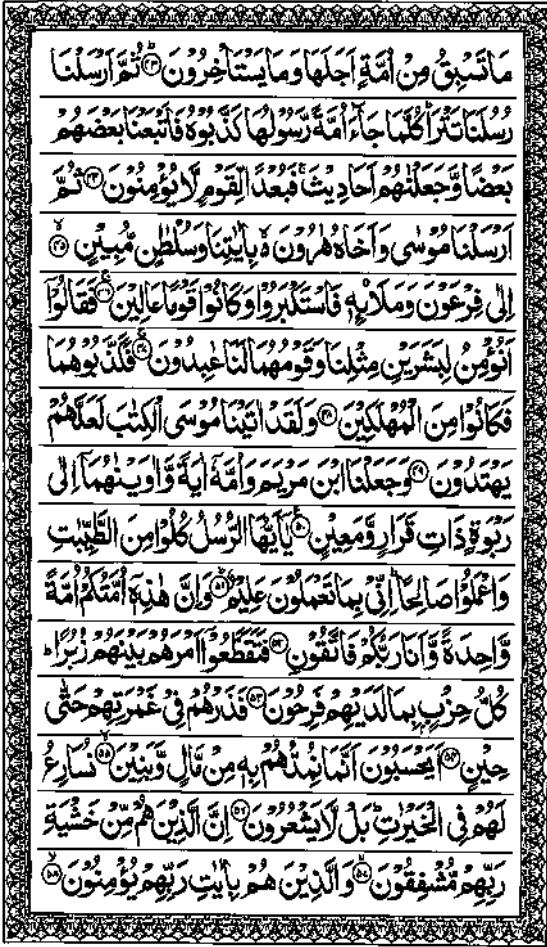 مَا تَسْبِقُ مِنْ اُمَّةٍ اَجَلَهَا وَمَا يَسْتَاْخِرُوْنَ ﴿۴۳﴾ ثُمَّ اَرْسَلْنَا
رُسُلَنَا تَتْرَا ؕ كُلَّمَا جَآءَ اُمَّةً رَّسُوْلُهَا كَذَّبُوْهُ فَاَتْبَعْنَا بَعْضَهُمْ
بَعْضًا وَّجَعَلْنٰهُمْ اَحَادِيْثَ ۚ فَبُعْدًا لِّقَوْمٍ لَّا يُؤْمِنُوْنَ ﴿۴۴﴾ ثُمَّ
اَرْسَلْنَا مُوْسٰى وَاَخَاهُ هٰرُوْنَ ۙ۬ بِاٰيٰتِنَا وَسُلْطٰنٍ مُّبِيْنٍ ﴿۴۵﴾
اِلٰى فِرْعَوْنَ وَمَلَا۟ئِهٖ فَاسْتَكْبَرُوْا وَكَانُوْا قَوْمًا عَالِيْنَ ﴿۴۶﴾ فَقَالُوْۤا
اَنُؤْمِنُ لِبَشَرَيْنِ مِثْلِنَا وَقَوْمُهُمَا لَنَا عٰبِدُوْنَ ﴿۴۷﴾ فَكَذَّبُوْهُمَا
فَكَانُوْا مِنَ الْمُهْلَكِيْنَ ﴿۴۸﴾ وَلَقَدْ اٰتَيْنَا مُوْسَى الْكِتٰبَ لَعَلَّهُمْ
يَهْتَدُوْنَ ﴿۴۹﴾ وَجَعَلْنَا ابْنَ مَرْيَمَ وَاُمَّهٗۤ اٰيَةً وَّاٰوَيْنٰهُمَاۤ اِلٰى
رَبْوَةٍ ذَاتِ قَرَارٍ وَّمَعِيْنٍ ﴿۵۰﴾ يٰۤاَيُّهَا الرُّسُلُ كُلُوْا مِنَ الطَّيِّبٰتِ
وَاعْمَلُوْا صَالِحًا ؕ اِنِّيْ بِمَا تَعْمَلُوْنَ عَلِيْمٌ ﴿۵۱﴾ وَاِنَّ هٰذِهٖۤ اُمَّتُكُمْ اُمَّةً
وَّاحِدَةً وَّاَنَا رَبُّكُمْ فَاتَّقُوْنِ ﴿۵۲﴾ فَتَقَطَّعُوْۤا اَمْرَهُمْ بَيْنَهُمْ زُبُرًا ؕ
كُلُّ حِزْبٍۭ بِمَا لَدَيْهِمْ فَرِحُوْنَ ﴿۵۳﴾ فَذَرْهُمْ فِيْ غَمْرَتِهِمْ حَتّٰى
حِيْنٍ ﴿۵۴﴾ اَيَحْسَبُوْنَ اَنَّمَا نُمِدُّهُمْ بِهٖ مِنْ مَّالٍ وَّبَنِيْنَ ﴿۵۵﴾ نُسَارِعُ
لَهُمْ فِي الْخَيْرٰتِ ؕ بَلْ لَّا يَشْعُرُوْنَ ﴿۵۶﴾ اِنَّ الَّذِيْنَ هُمْ مِّنْ خَشْيَةِ
رَبِّهِمْ مُّشْفِقُوْنَ ﴿۵۷﴾ وَالَّذِيْنَ هُمْ بِاٰيٰتِ رَبِّهِمْ يُؤْمِنُوْنَ ﴿۵۸﴾